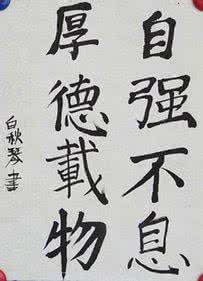 自强不息
厚德載物
白秋琴書